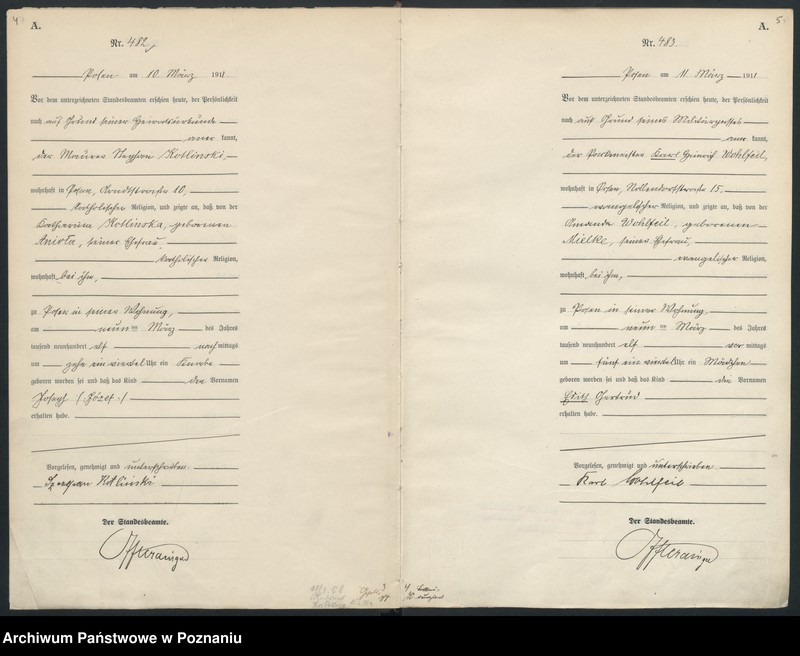 4
A.
Nr. 482
Posen am 10. März 1911
Vor dem unterzeichneten Standesbeamten erschien heute, der Persönlichkeit
nach auf Grund seiner Heiratsurkunde
aner kannt,
der Maurer Stephan Kotlinski
wohnhaft in Posen, Arndtstraße 10,
katholischer Religion, und zeigte an, daß von der
Katharina Kotlinska, geborenen
Aniola, seiner Ehefrau,
katholischer Religion,
wohnhaft bei ihm,
zu Posen in seiner Wohnung,
am neun ten März des Jahres
tausend neunhundert elf nach mittags
um zehn ein viertel Uhr ein Knabe
geboren worden sei und daß das Kind den Vornamen
Joseph (Józef)
erhalten habe.
Vorgelesen, genehmigt und unterschrieben.
Kotliński
Der Standesbeamte.
5
A.
Nr. 483
Posen am 11. März 1911
Vor dem unterzeichneten Standesbeamten erschien heute, der Persönlichkeit
nach auf Grund seines Militärpasses
aner kannt,
der Karl Heinrich Wohlfeil,
wohnhaft in Posen, Nollendorfstraße 15.
evangelischer Religion, und zeigte an, daß von der
Amanda Wohlfeil, geborenen
Mielke, seiner Ehefrau,
evangelischer Religion,
wohnhaft bei ihm,
zu Posen in seiner Wohnung,
am neun ten März des Jahres
tausend neunhundert elf vor mittags
um fünf ein viertel Uhr ein Mädchen
geboren worden sei und daß das Kind den Vornamen
Edith Gertrud
erhalten habe.
Vorgelesen, genehmigt und unterschrieben
Karl Wohlfeil
Der Standesbeamte.
Archiwum Państwowe w Poznaniu